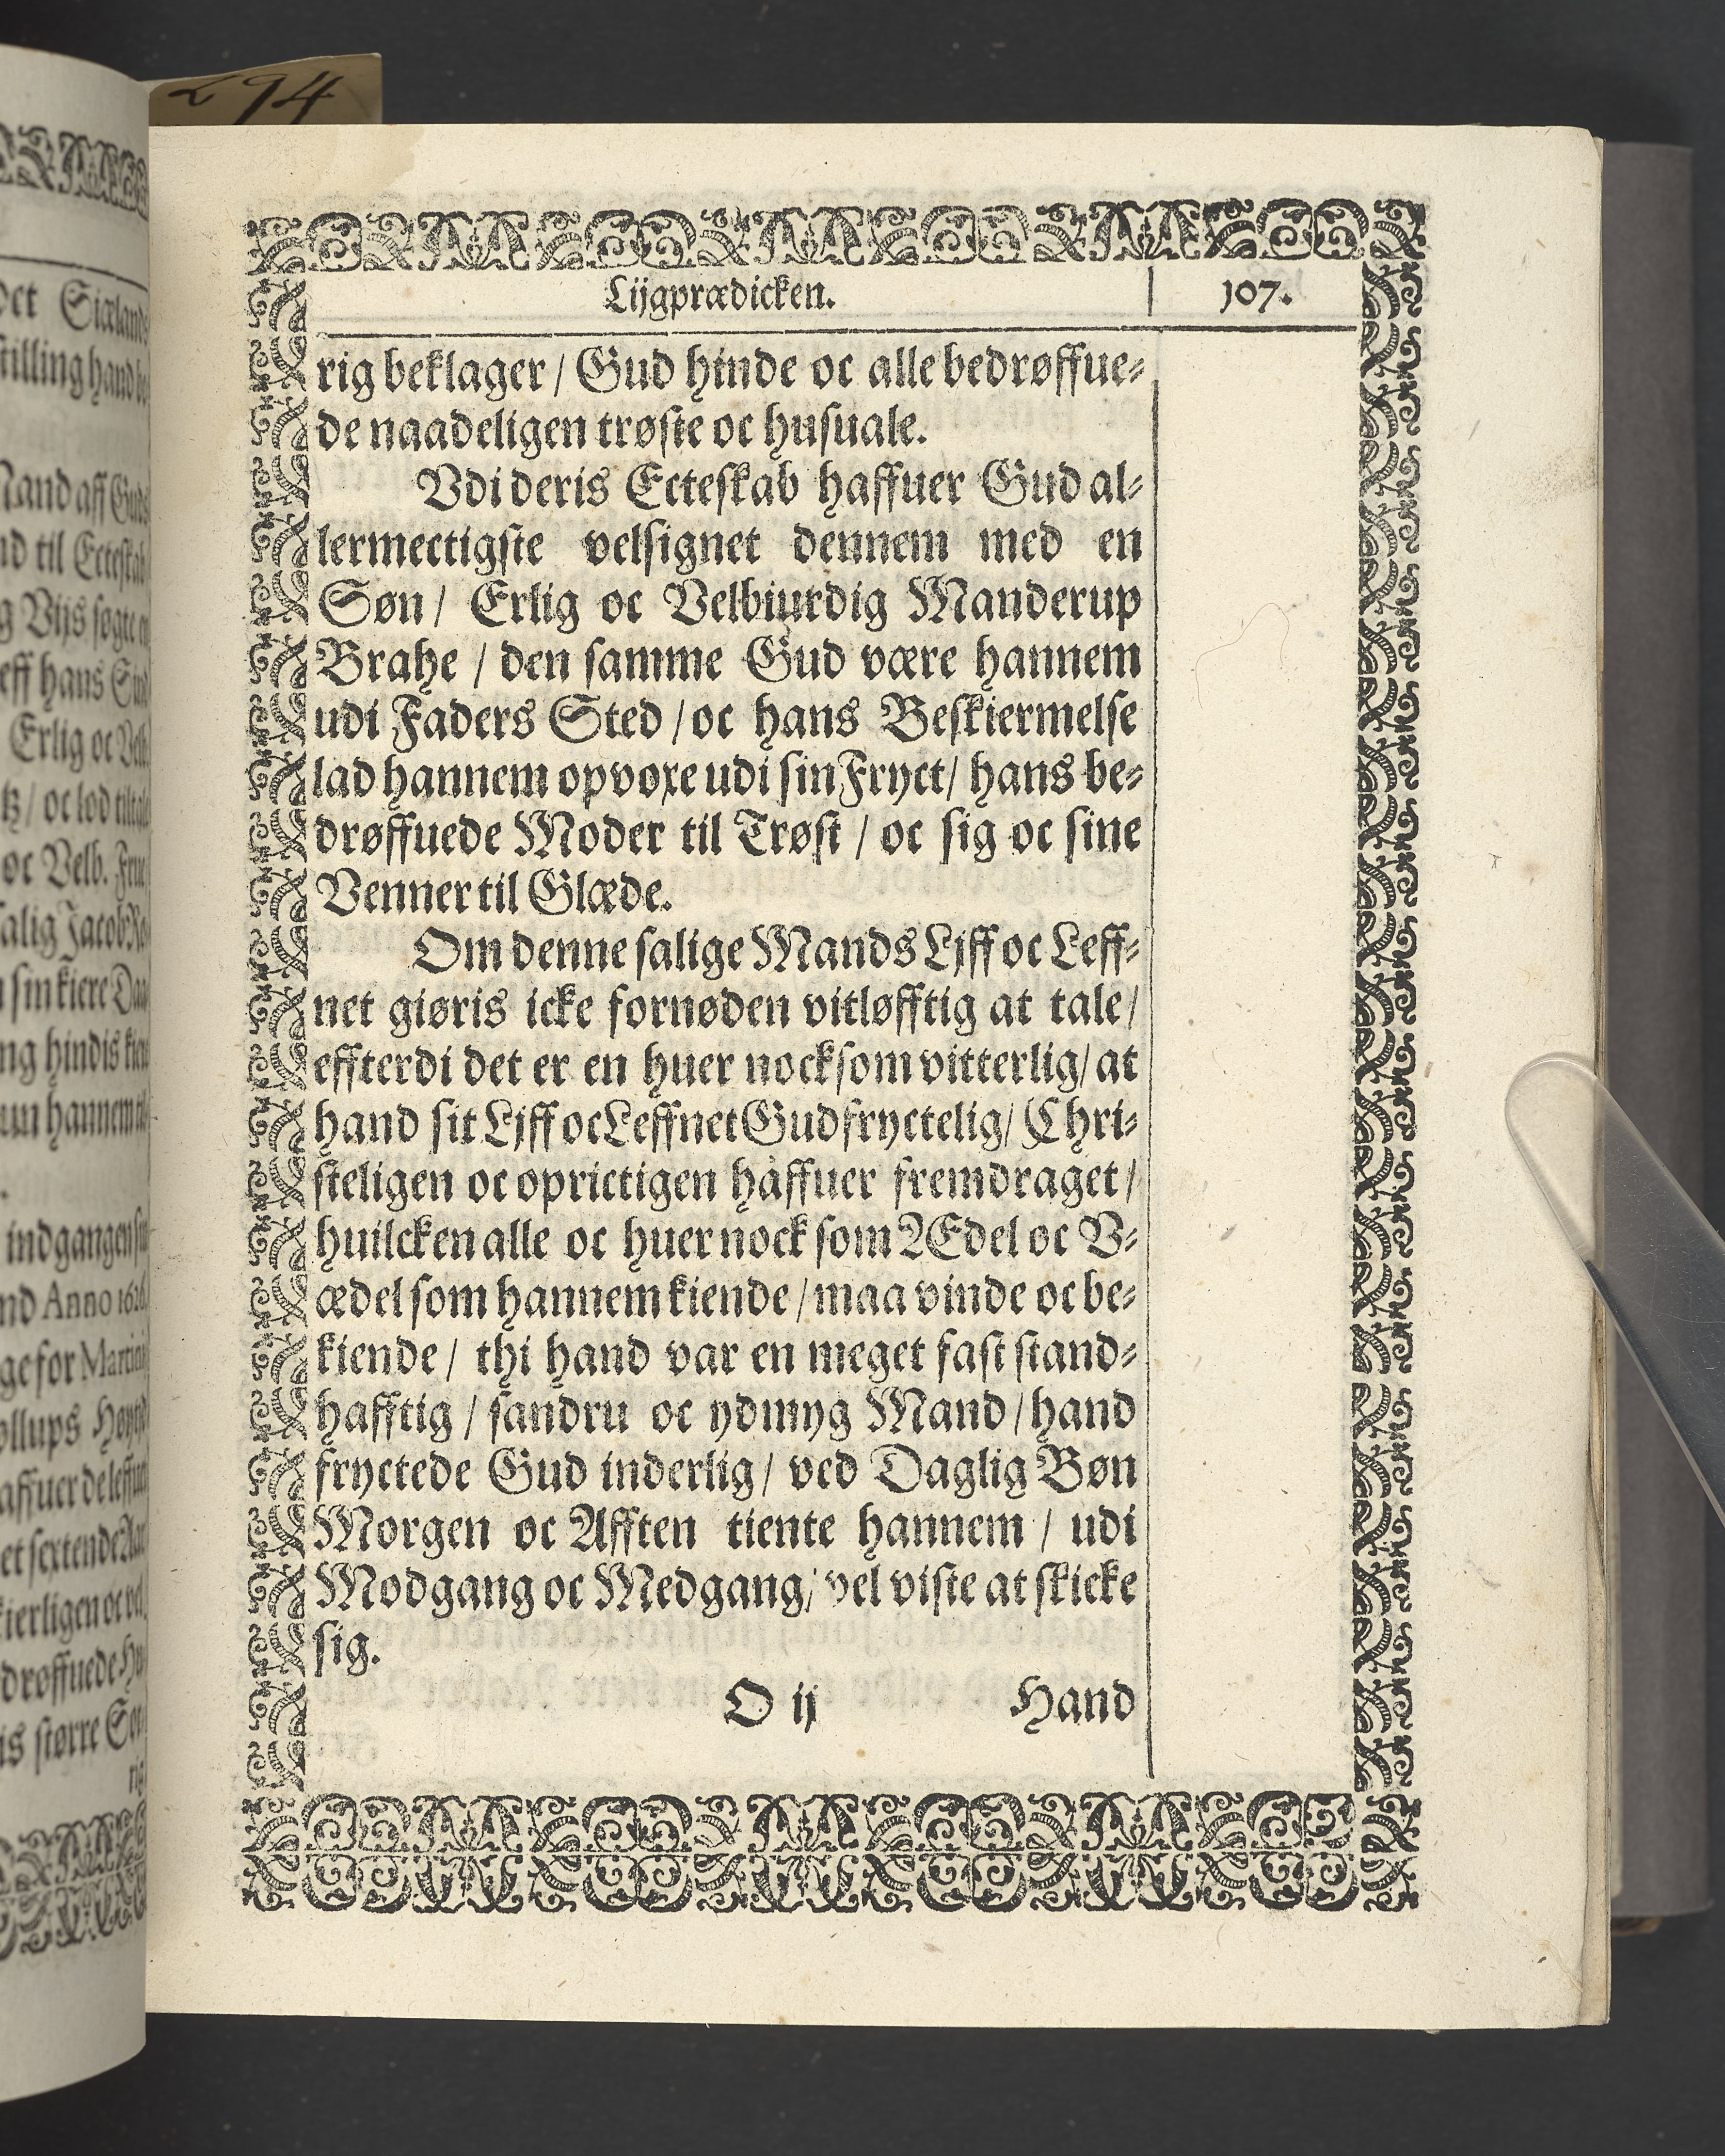 294
Lijgprædicken.
107.
rig beklager / Gud hinde oc alle bedrøffue-
de naadeligen trøste oc husuale.
Vdi deris Ecteskab haffuer Gud al-
lermectigste velsignet dennem med en
Søn / Erlig oc Velbiurdig Manderup
Brahe / den samme Gud være hannem
udi Faders Sted / oc hans Beskiermelse
lad hannem opvoxe udi sin Fryct / hans be-
drøffuede Moder til Trøst / oc sig oc sine
Venner til Glæde.
Om denne salige Mands Ljff oc Leff-
net giøris icke fornøden vitløfftig at tale /
effterdi det er en huer nocksom vitterlig / at
hand sit Ljff oc Leffnet Gudfryctelig / Chri-
steligen oc oprictigen haffuer fremdraget /
huilcken alle oc huer nock som Ædel oc V-
ædel som hannem kiende / maa vinde oc be-
kiende / thi hand var en meget fast stand-
hafftig / sandru oc ydmyg Mand / hand
fryctede Gud inderlig / ved Daglig Bøn
Morgen oc Afften tiente hannem / udi
Modgang oc Medgang / vel viste at skicke
sig.
O ij
Hand
det Siæland
stilling hand
aff
til Ecteskab
Vijs søgte
hans
Erlig oc
/ oc lod
oc Velb. Frue
salig Jacob
sin kiere
hindis
hannem
indgangen
Anno 1626
for Martini
affuer de
større